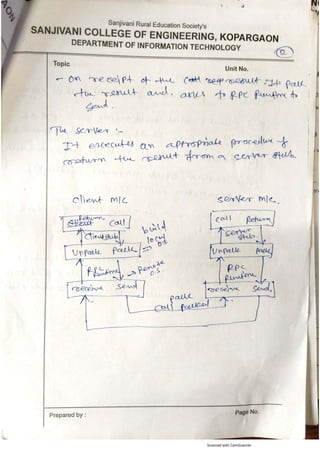 Sanjivani Rural Education Society's
SANJIVANI COLLEGE OF ENGINEERING, KOPARGAON
DEPARTMENT OF INFORMATION TECHNOLOGY
Topic
Unit No.
- On receipt of the result It pack
the result and. asks to RPC Runtime to
send.
The server :-
It executes an appropriate procedure &
return the result from a server stub.
client m/c
server m/c.
Return call
call Return
client stub
build
local
o.s
server
stub
Unpack Pack
Unpack Pack
RPC
Runtime
Remote
o.s.
RPC
Runtime
receive send
receive send
pack
call packed
Prepared by :
Page No.
Scanned with CamScanner